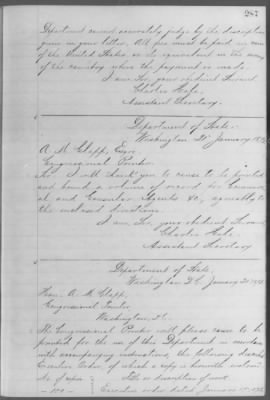 287
Department cannot accurately judge by the description
given in your letter. All fees must be paid in coin
of the United States, or its equivalent in the money
of the country where the payment is made.
I am, Sir, your obedient Servant
Charles Hale,
Assistant Secretary.
Department of State.
Washington, D.C. January
A. M. Clapp, Esqre
Congressional Printer.
Sir: I will thank you to cause to be printed
and bound a volume of record for Commercial
and Consular Agents &c, agreeably to
the enclosed directions.
I am, Sir, your obedient Servant,
Charles Hale,
Assistant Secretary
Department of State,
Washington, D.C. January
Hon. A. M. Clapp,
Congressional Printer
Washington, D.C.
The Congressional Printer will please cause to be
printed for the use of this Department in accordance
with accompanying instructions, the following described
Executive Order, of which a copy is herewith enclosed.
No of copies Title or description of work
100 Executive order dated January